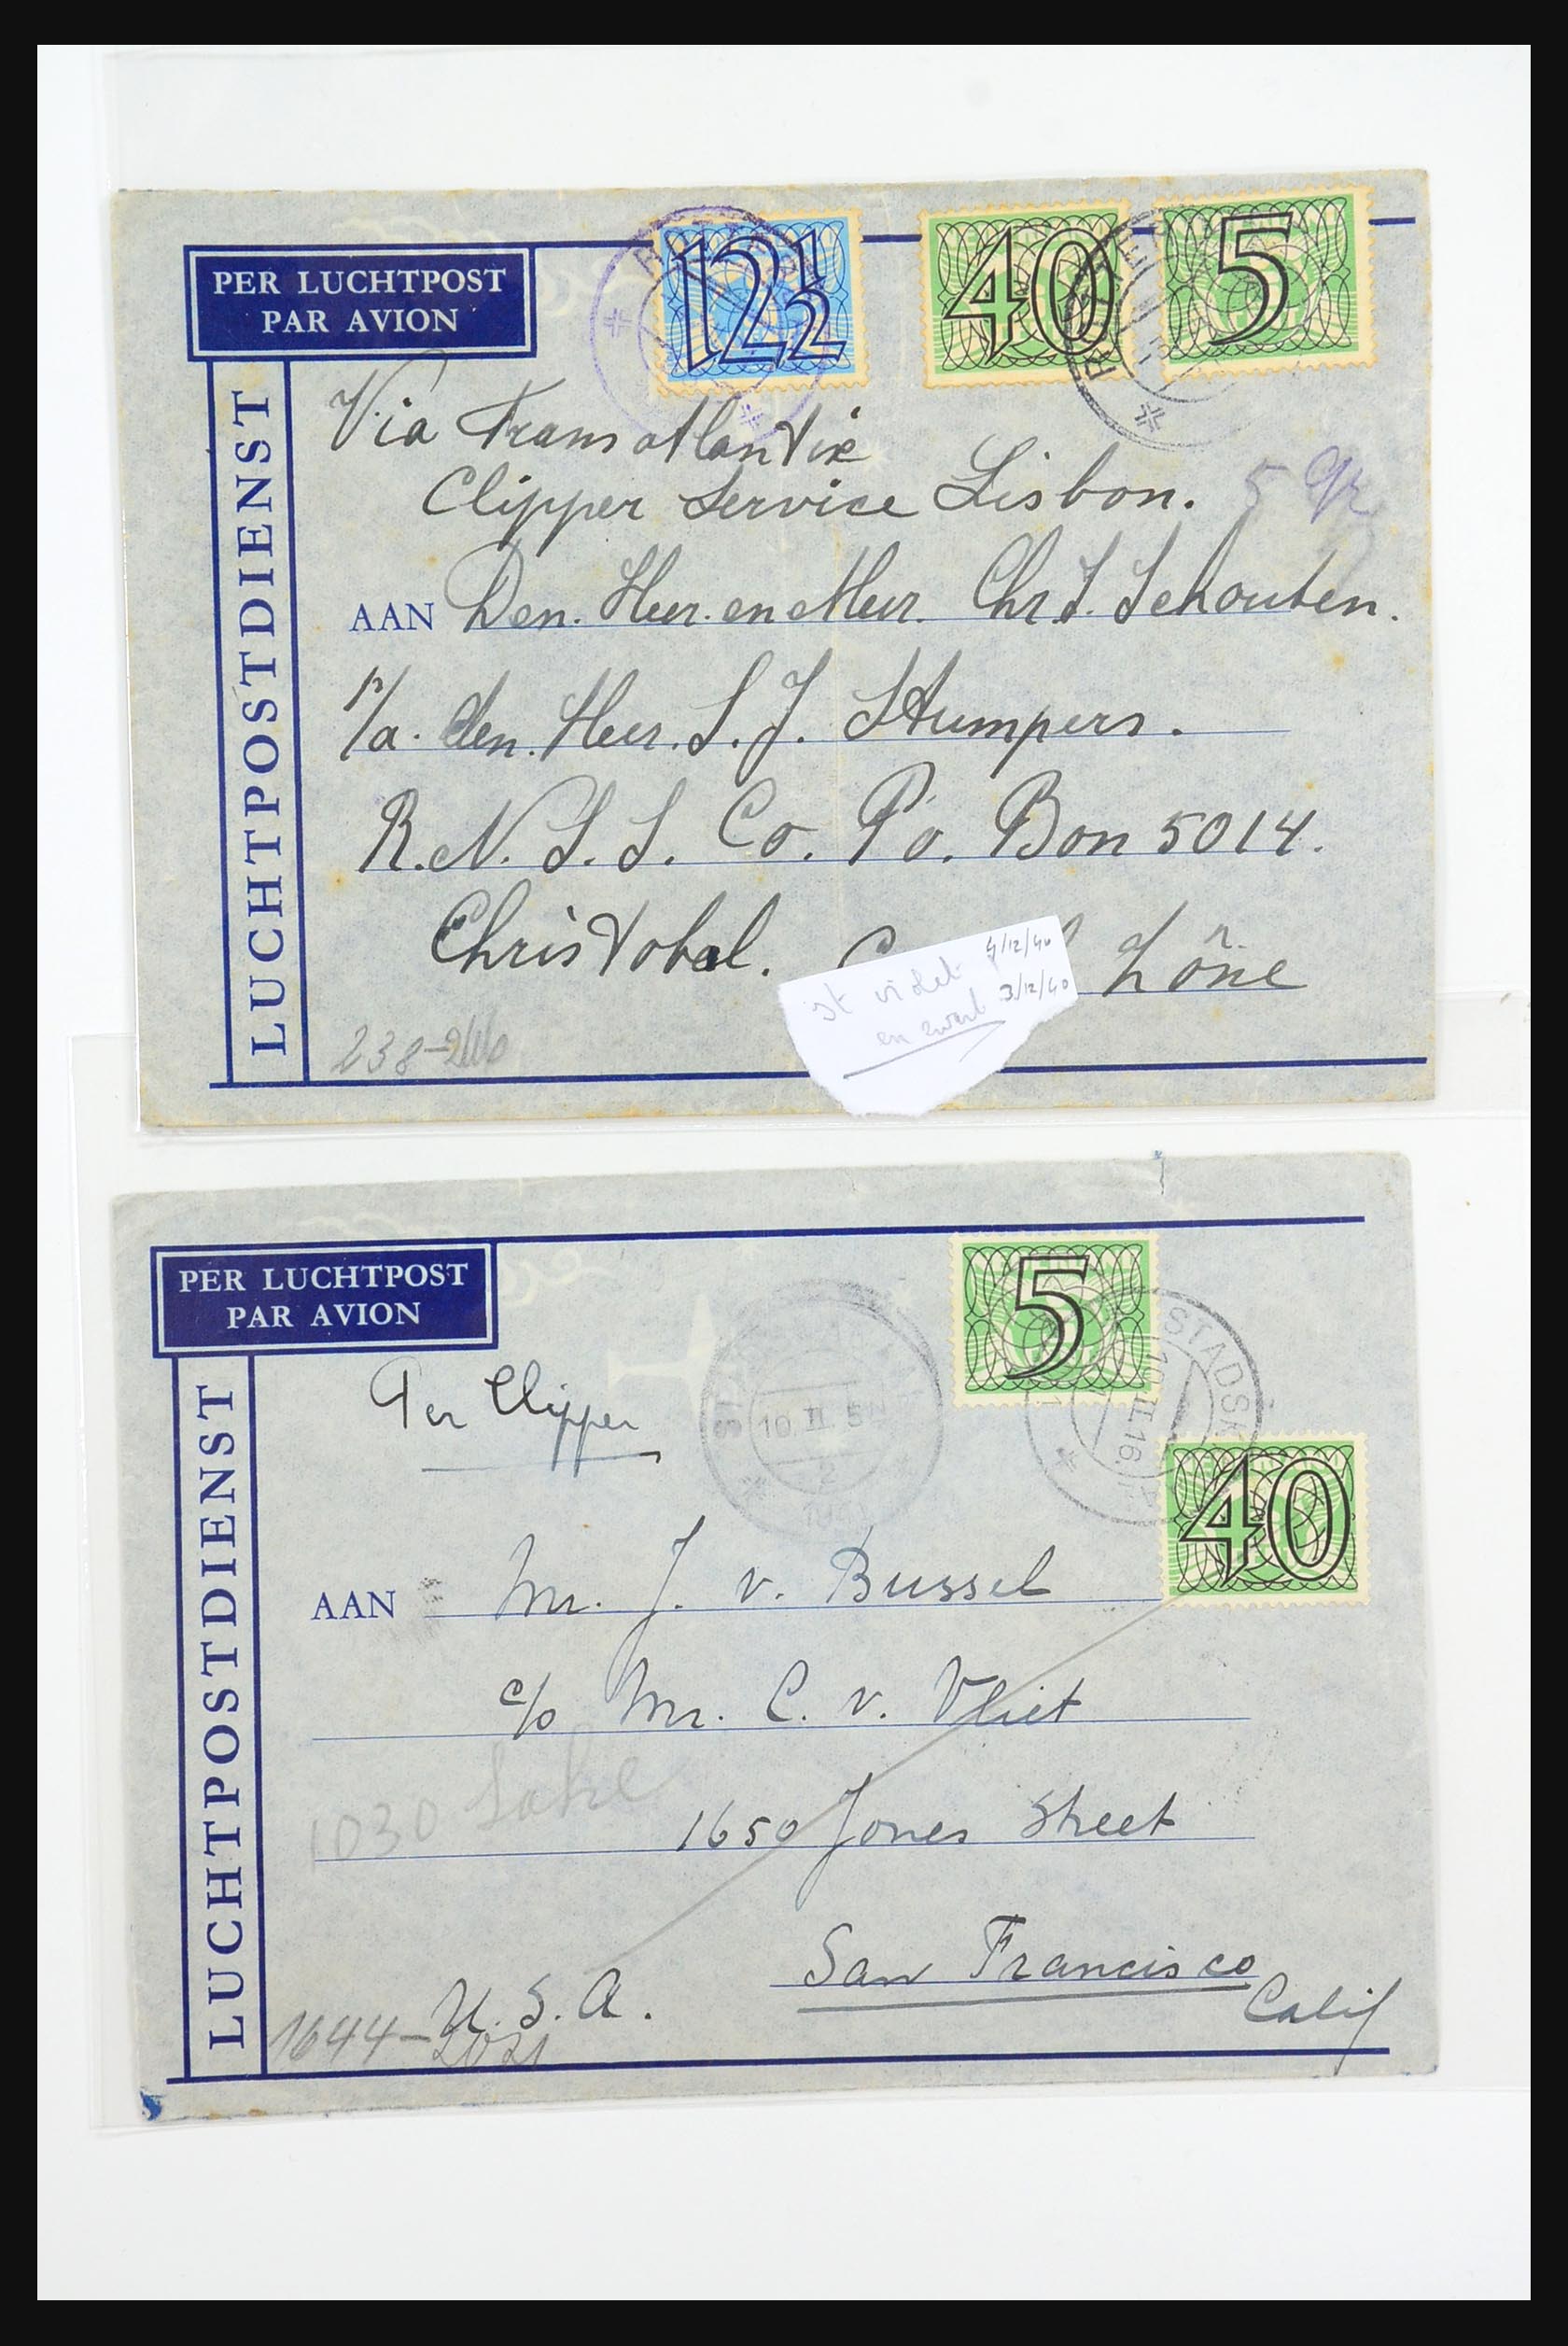 12½ 40 5
PER LUCHTPOST
PAR AVION
LUCHTPOSTDIENST
Via Transatlantic
Clipper Service Lisbon.
5 gr
AAN Den. Heer. en Mevr. Chr. S. Schouten.
p/a. den. Heer. S. J. Stumpers.
R. N. S. S. Co. Po. Box 5014.
Christobal. Zône
st violet 4/12/40
en zwart 3/12/40
238-
5
40
PER LUCHTPOST
PAR AVION
LUCHTPOSTDIENST
STADSK
10 II 16
10.II.5
2
Per Clipper
AAN Mr. J. v. Bussel
c/o Mr. C. v. Vliet
1030 Lake
1650 Jones Street
San Francisco
U. S. A. Calif
1644-2021